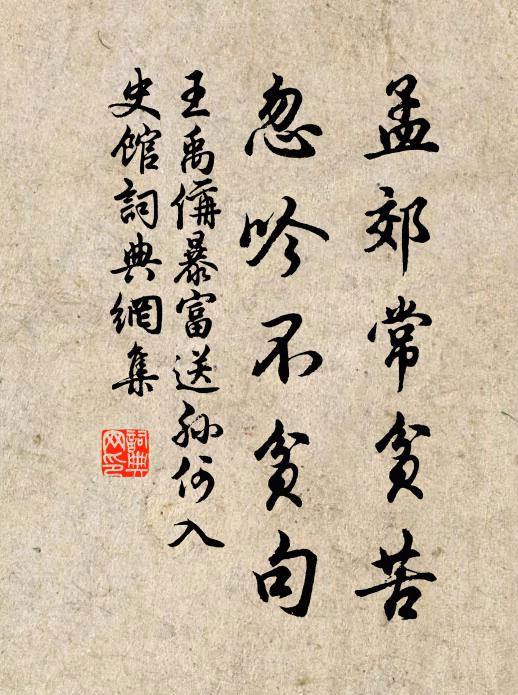 孟郊常貧苦
忽吟不貧句
王禹偁暴富送孫何入
史館詞典網集
詞典
网印